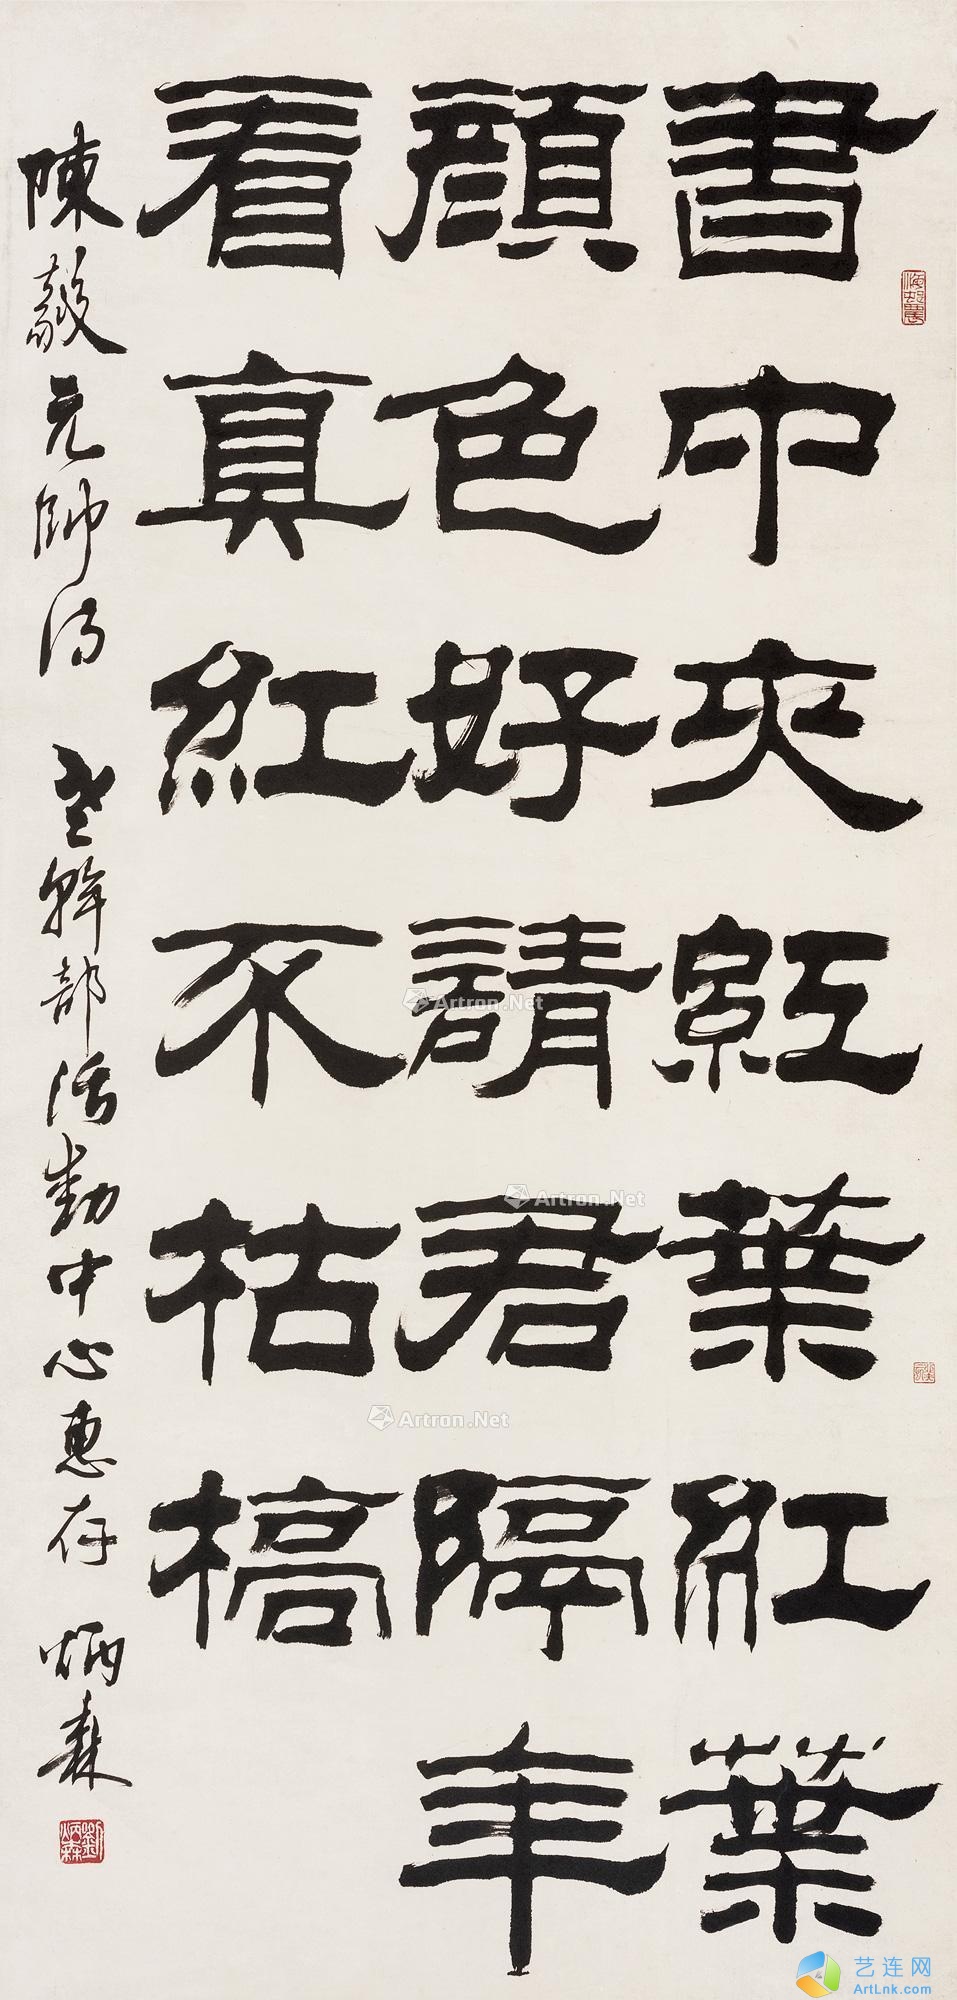 書中夾紅葉紅葉
顏色好請君隔年
看真紅不枯槁
陳毅元帥詩 老幹部活動中心惠存 炳森
劉炳森
Artron.Net
Artron.Net
Artron.Net
艺连网
ArtLnk.com